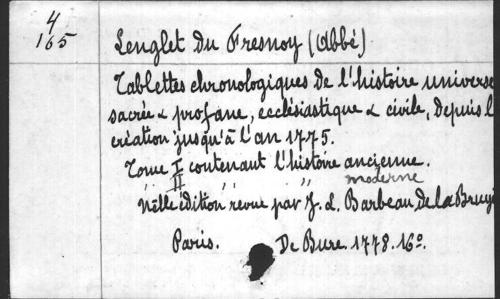 4
165
Lenglet Du Fresnoy (Abbé)
Tablettes chronologiques de l'histoire universe
sacrée & profane, ecclésiastique & civile, depuis l
création jusqu'à l'an 1775.
Tome I contenant l'histoire ancienne.
II " " " moderne
Nelle édition revue par J. L. Barbeau de la Bruyè
Paris. De Bure. 1778. 16o.